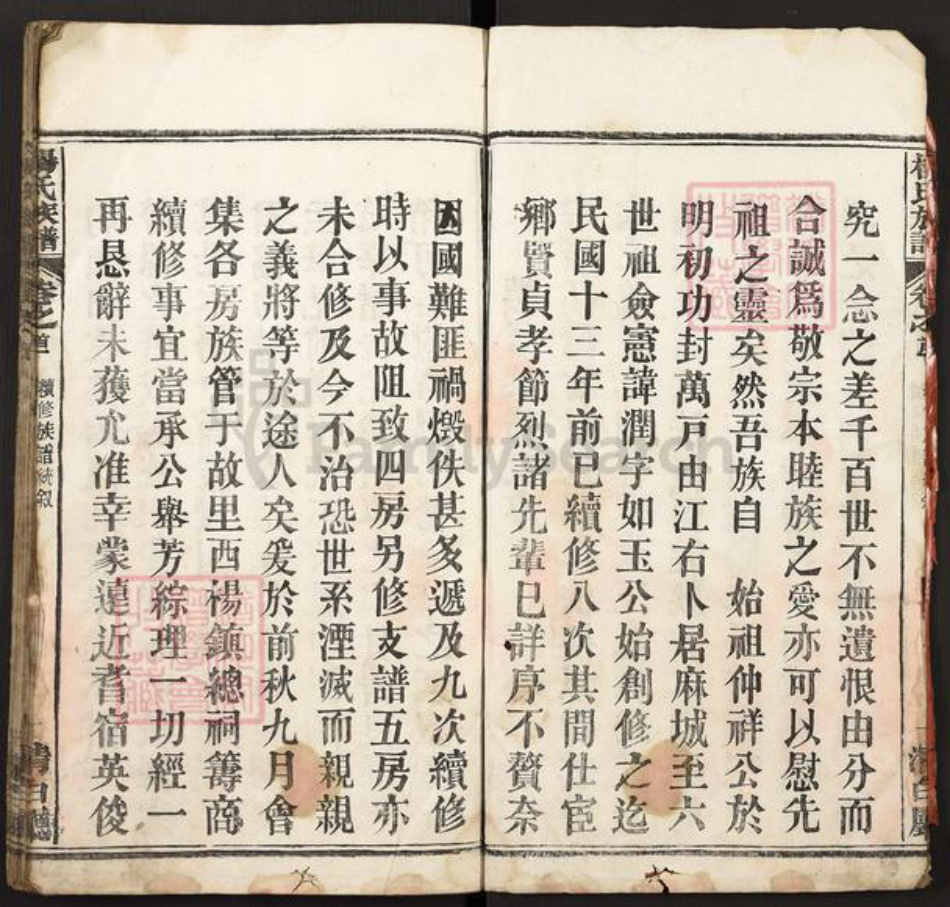 究一念之差千百世不無遺恨由分而
合誠爲敬宗本睦族之愛亦可以慰先
祖之靈矣然吾族自 始祖仲祥公於
明初功封萬戸由江右卜居麻城至六
世祖僉憲諱潤字如玉公始創修之迄
民國十三年前已續修八次其間仕宦
鄉賢貞孝節烈諸先輩已詳序不贅奈
因國難匪禍燬佚甚多遞及九次續修
時以事故阻致四房另修支譜五房亦
未合修及今不治恐世系湮滅而親親
之義將等於途人矣爰於前秋九月會
集各房族管于故里西楊鎮總祠籌商
續修事宜當承公舉芳綜理一切經一
再恳辭未蒦允准幸蒙遠近耆宿英俊
楊氏族譜 卷之首 續修族譜統叙 清白
FamilySearch